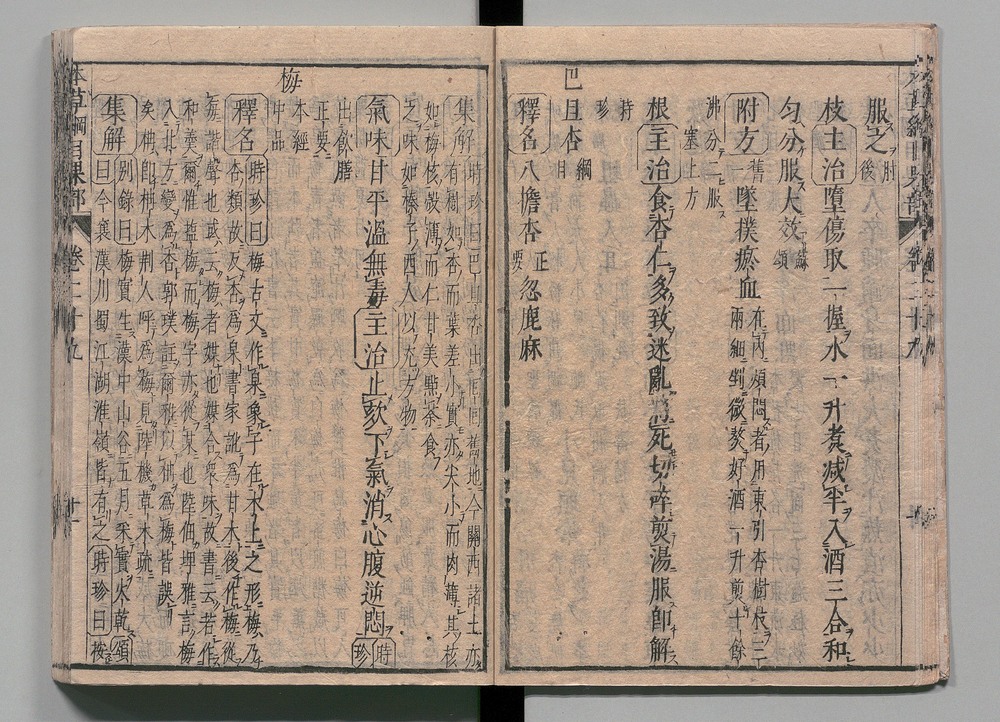 服之肘後
枝主治墮傷取一握水一升煮減半入酒三合和
勻分服大效蘇頌
附方舊一墜撲瘀血在內煩悶者用東引杏樹枝三
兩細剉微熬好酒一升煎十餘
沸分二服
塞上方
根主治食杏仁多致迷亂將死切碎煎湯服即解
時珍
巴旦杏綱目
釋名八擔杏正要忽鹿麻
集解時珍曰巴旦杏出回回舊地今關西諸土亦
有樹如杏而葉差小實亦尖小而肉薄其核
如梅核殼薄而仁甘美點茶食
之味如榛子西人以充方物
氣味甘平溫無毒主治止欬下氣消心腹逆悶時珍
出飲膳
正要
梅本經中品
釋名時珍曰梅古文作呆象子在木上之形梅乃
杏類故反杏為呆書家訛為甘木後作梅從
每諧聲也或云梅者媒也媒合眾味故書云若作
和羹爾惟鹽梅而梅字亦從某也陸佃埤雅言梅
入北方變為杏郭璞註爾雅以柟為梅皆誤
矣柟即柟木荊人呼為梅見陸機草木疏
集解別錄曰梅實生漢中山谷五月采實火乾頌
曰今襄漢川蜀江湖淮嶺皆有之時珍曰按
本草綱目果部 卷二十九